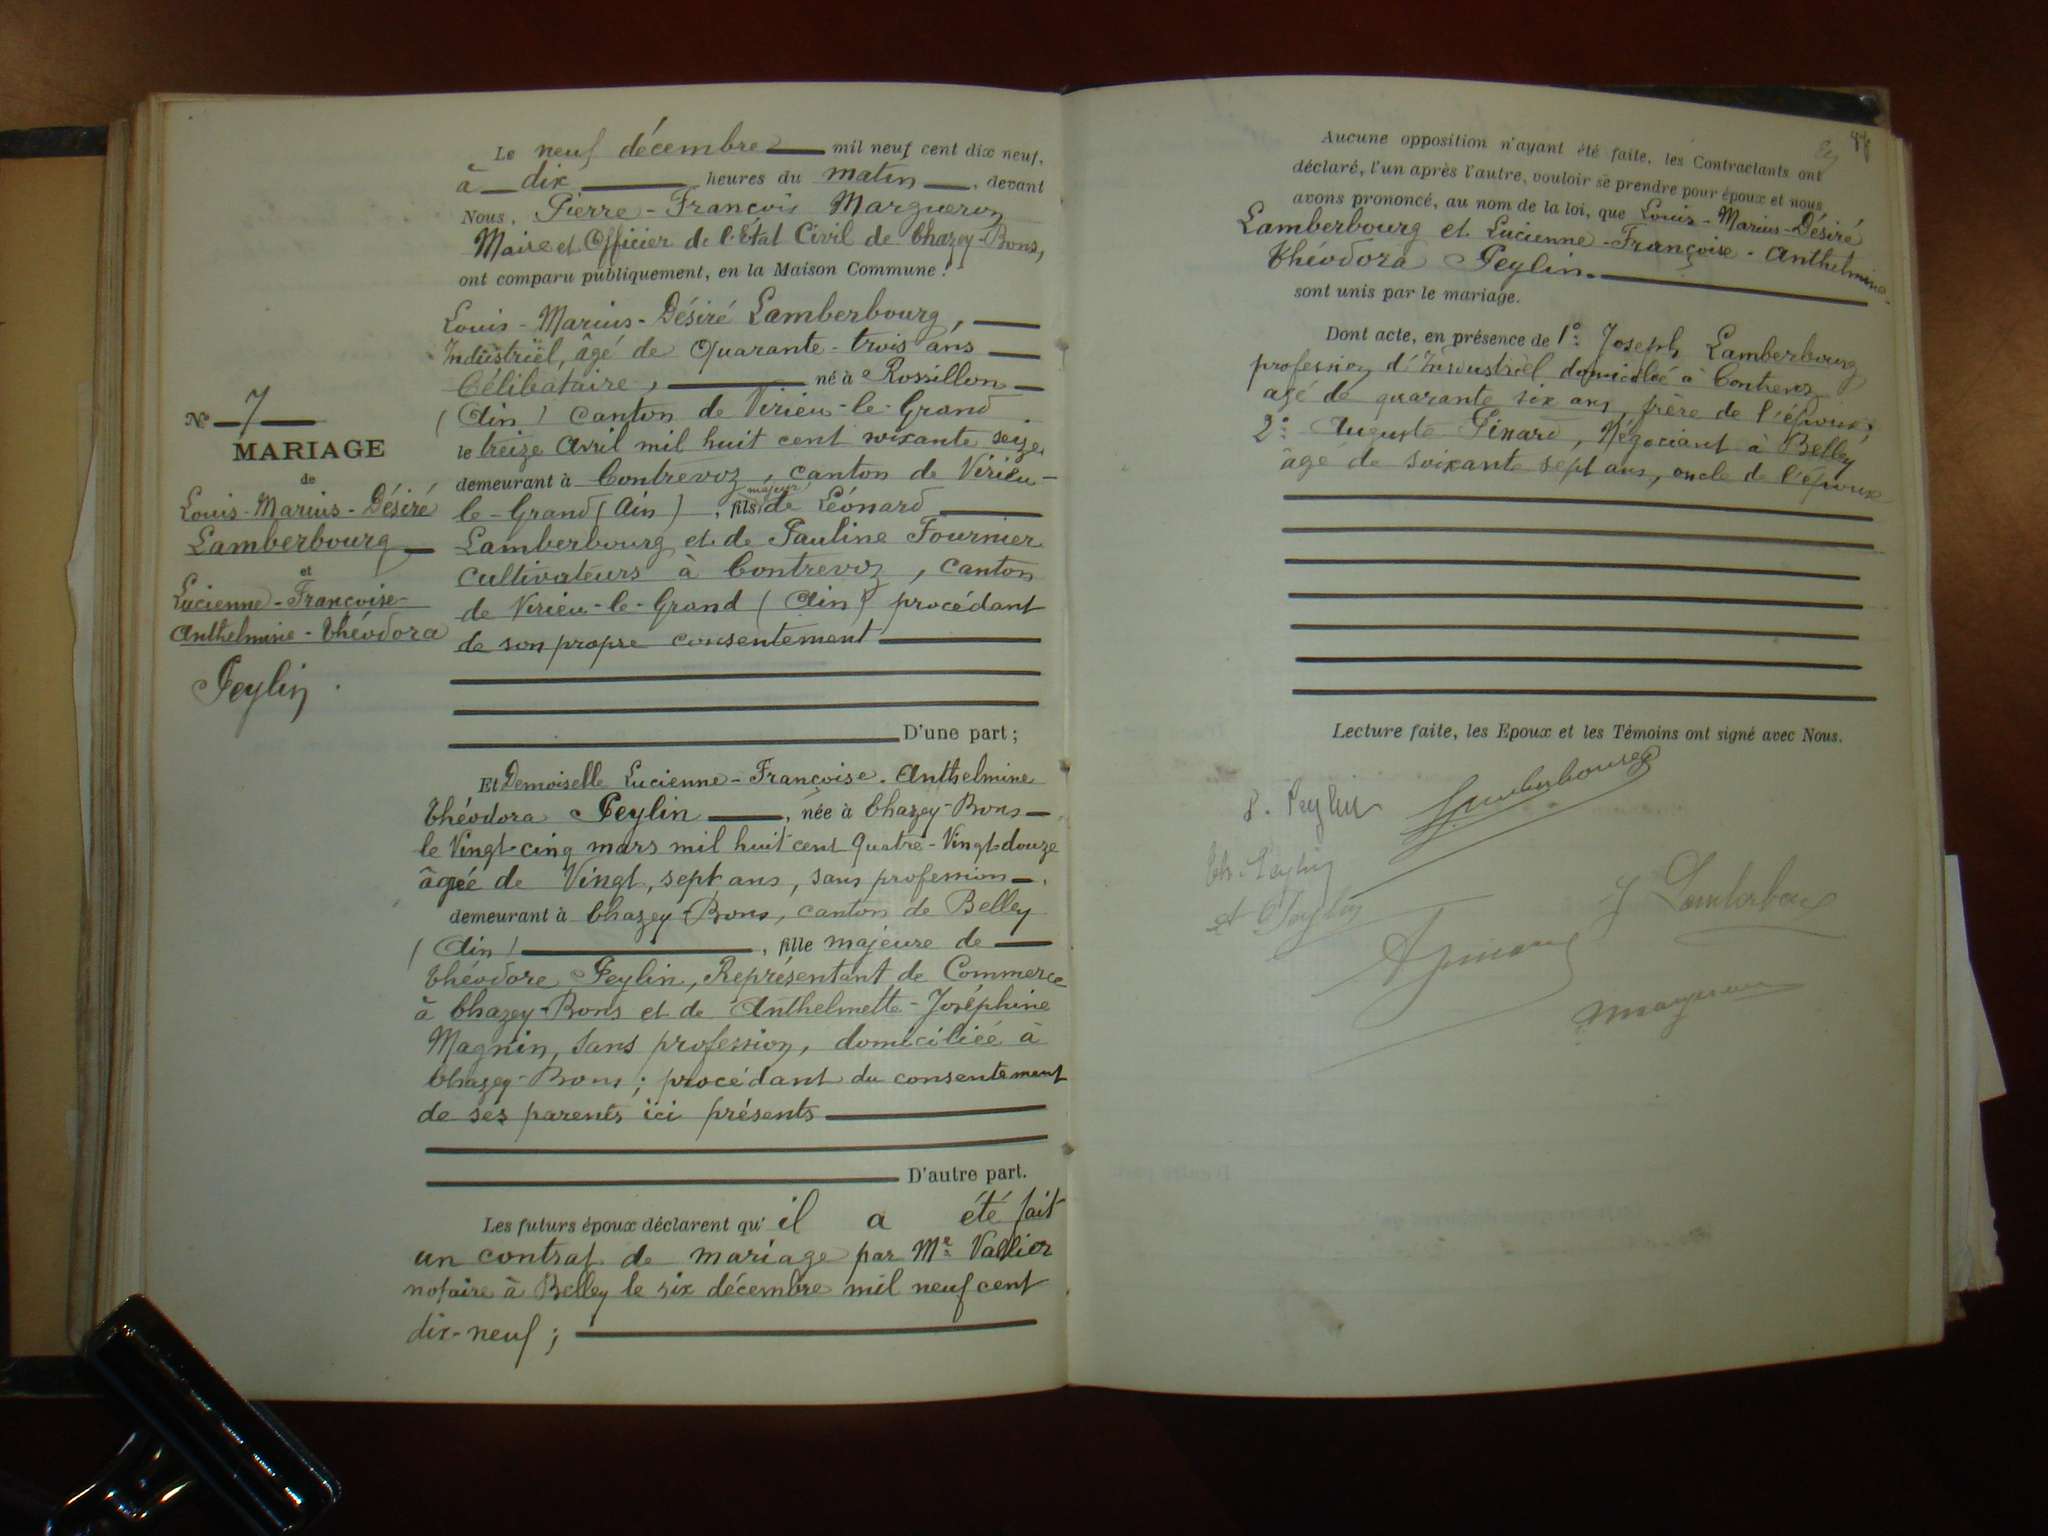 Le neuf décembre mil neuf cent dix neuf,
à dix heures du matin, devant
Nous, Pierre-François Margueron
Maire et Officier de l'État Civil de Chazey-Bons,
ont comparu publiquement, en la Maison Commune :
Louis-Marius-Désiré Lamberbourg,
Industriel, âgé de Quarante-trois ans
Célibataire, né à Rossillon
(Ain) canton de Virieu-le-Grand
le treize Avril mil huit cent soixante seize,
demeurant à Contrevoz, canton de Virieu-
majeur
le-Grand (Ain), fils de Léonard
Lamberbourg et de Pauline Fournier
cultivateurs à Contrevoz, canton
de Virieu-le-Grand (Ain) procédant
de son propre consentement
D'une part ;
Nº 7
MARIAGE
de
Louis-Marius-Désiré
Lamberbourg
et
Lucienne-Françoise-
Anthelmine-Théodora
Peylin.
Et Demoiselle Lucienne-Françoise-Anthelmine
Théodora Peylin, née à Chazey-Bons
le Vingt-cinq mars mil huit cent Quatre-Vingt-douze
âgée de Vingt, sept ans, sans profession,
demeurant à Chazey-Bons, canton de Belley
(Ain), fille majeure de
Théodore Peylin, Représentant de Commerce
à Chazey-Bons et de Anthelmette-Joséphine
Magnin, sans profession, domiciliée à
Chazey-Bons ; procédant du consentement
de ses parents ici présents
D'autre part.
Les futurs époux déclarent qu'il a été fait
un contrat de mariage par Me Vallier
notaire à Belley le six décembre mil neuf cent
dix-neuf ;
Aucune opposition n'ayant été faite, les Contractants ont
déclaré, l'un après l'autre, vouloir se prendre pour époux et nous
avons prononcé, au nom de la loi, que Louis-Marius-Désiré
Lamberbourg et Lucienne-Françoise-Anthelmine
Théodora Peylin.
sont unis par le mariage.
Dont acte, en présence de 1º: Joseph Lamberbourg
profession d'Industriel domicilié à Contrevoz
agé de quarante six ans, frère de l'époux ;
2º: Auguste Pinard, Négociant à Belley
âgé de soixante sept ans, oncle de l'époux
Lecture faite, les Epoux et les Témoins ont signé avec Nous.
L. Peylin Lamberbourg
Th. Peylin
A Peylin J Lamberbourg
A Pinard
Margueron